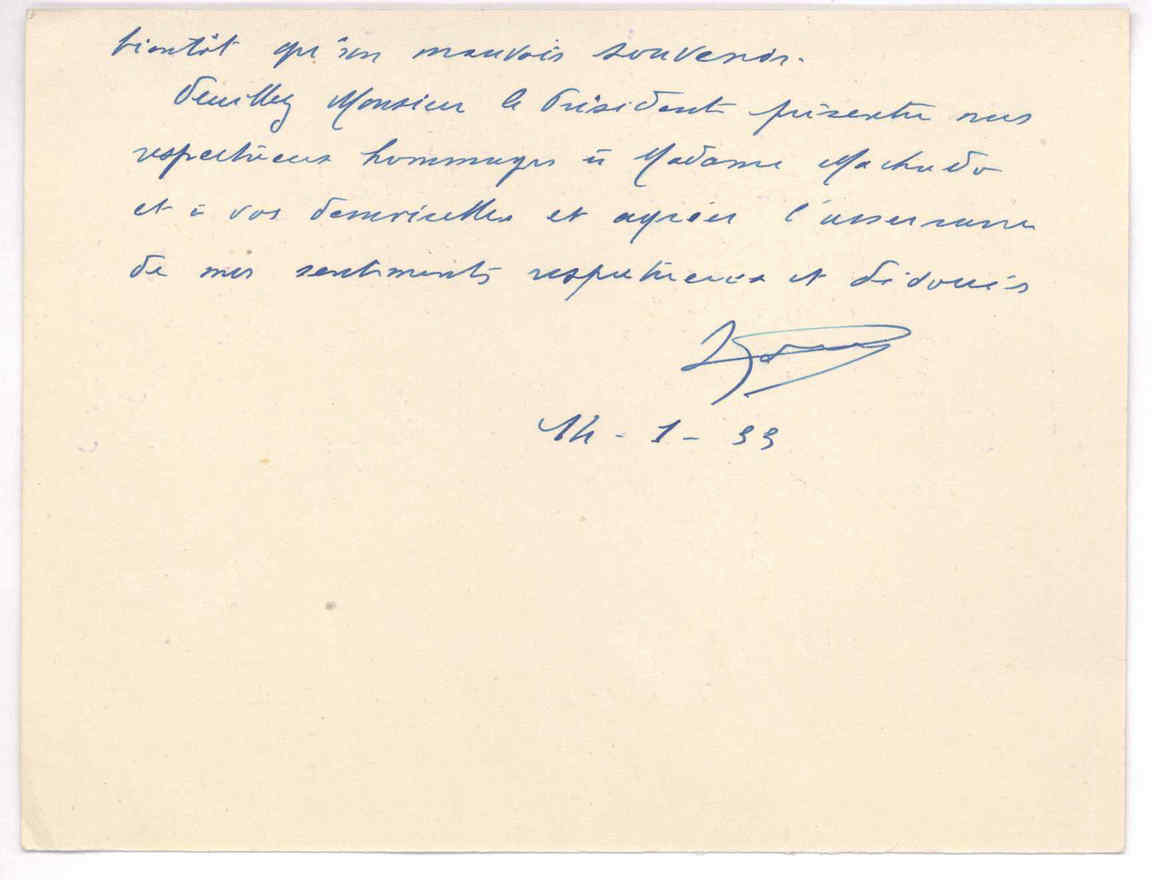 bientôt qu'un mauvais souvenir.
Veuillez Monsieur le Président présenter nos
respectueux hommages à Madame Machado
et à vos demoiselles et agréer l'assurance
de mes sentiments respectueux et dévoués
14-1-33